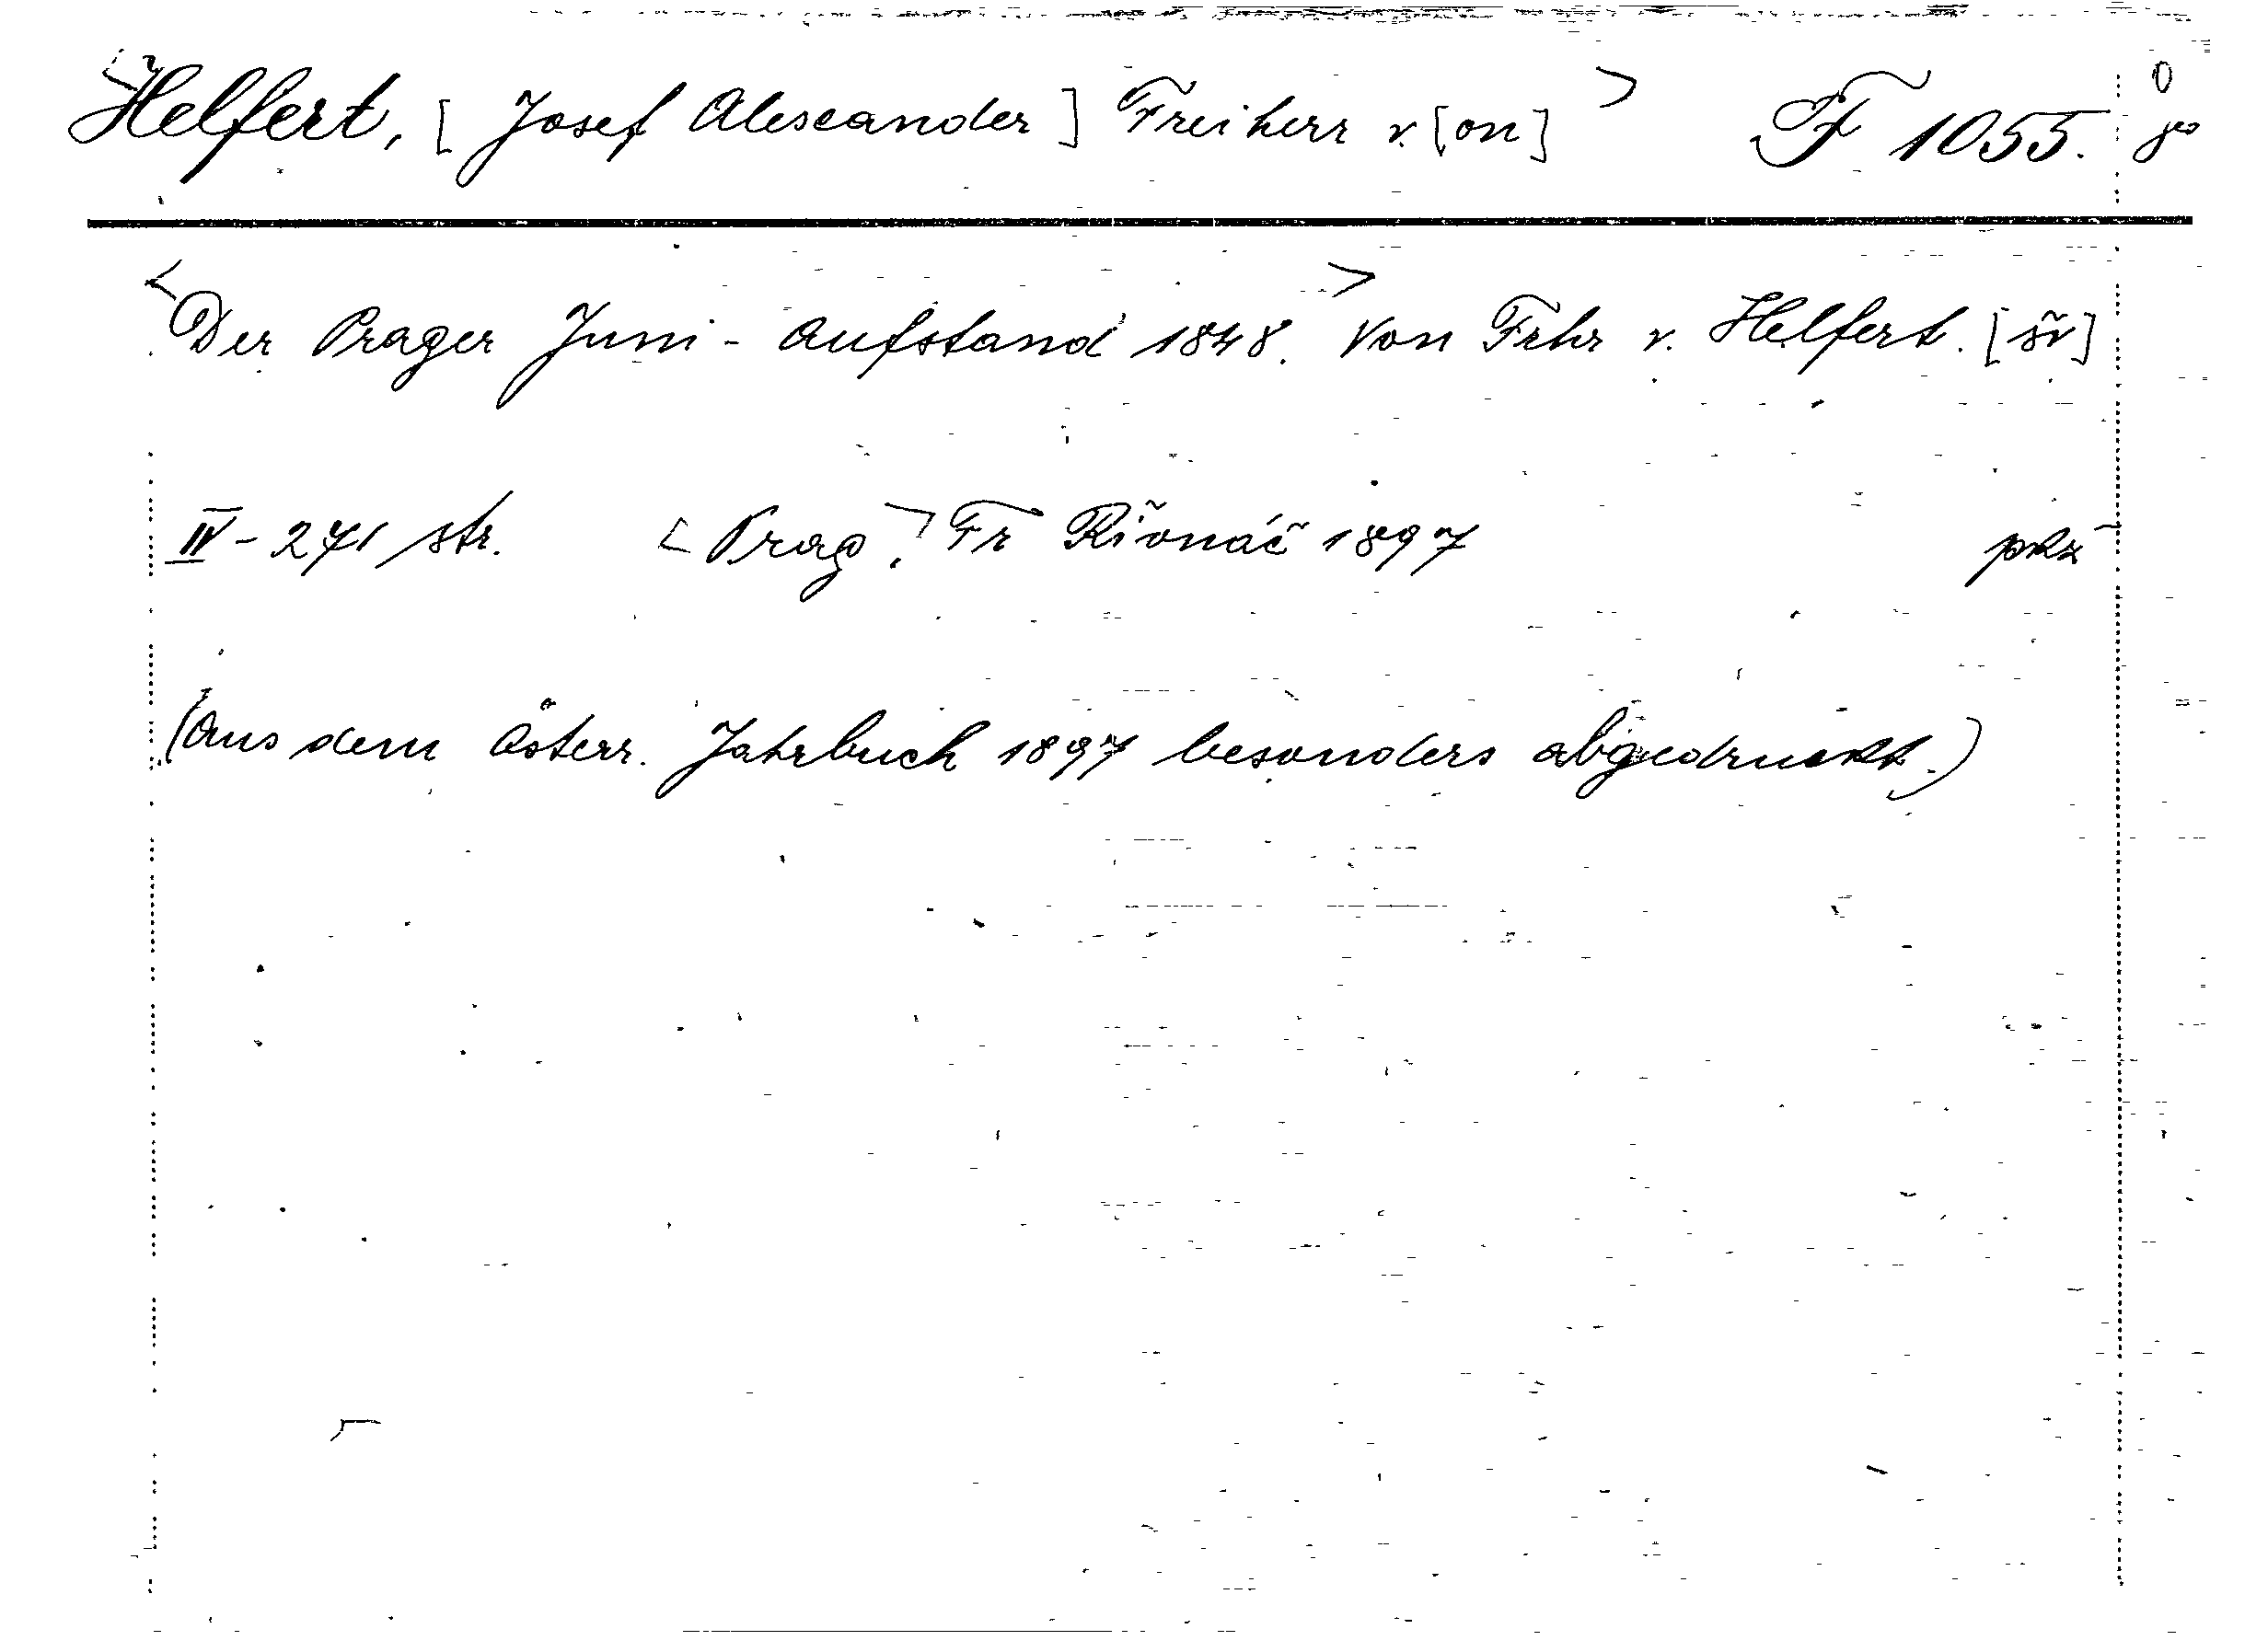 <Helfert, [Josef Alexander] Freiherr v.[on]> F 1055.
<Der Prager Juni-Aufstand 1848.> Von Frhr v. Helfert. [šv]
IV-271 str. <Prag>. Fr Řivnáč 1897 pkz
(Aus dem Österr. Jahrbuch 1897 besonders abgedruckt.)